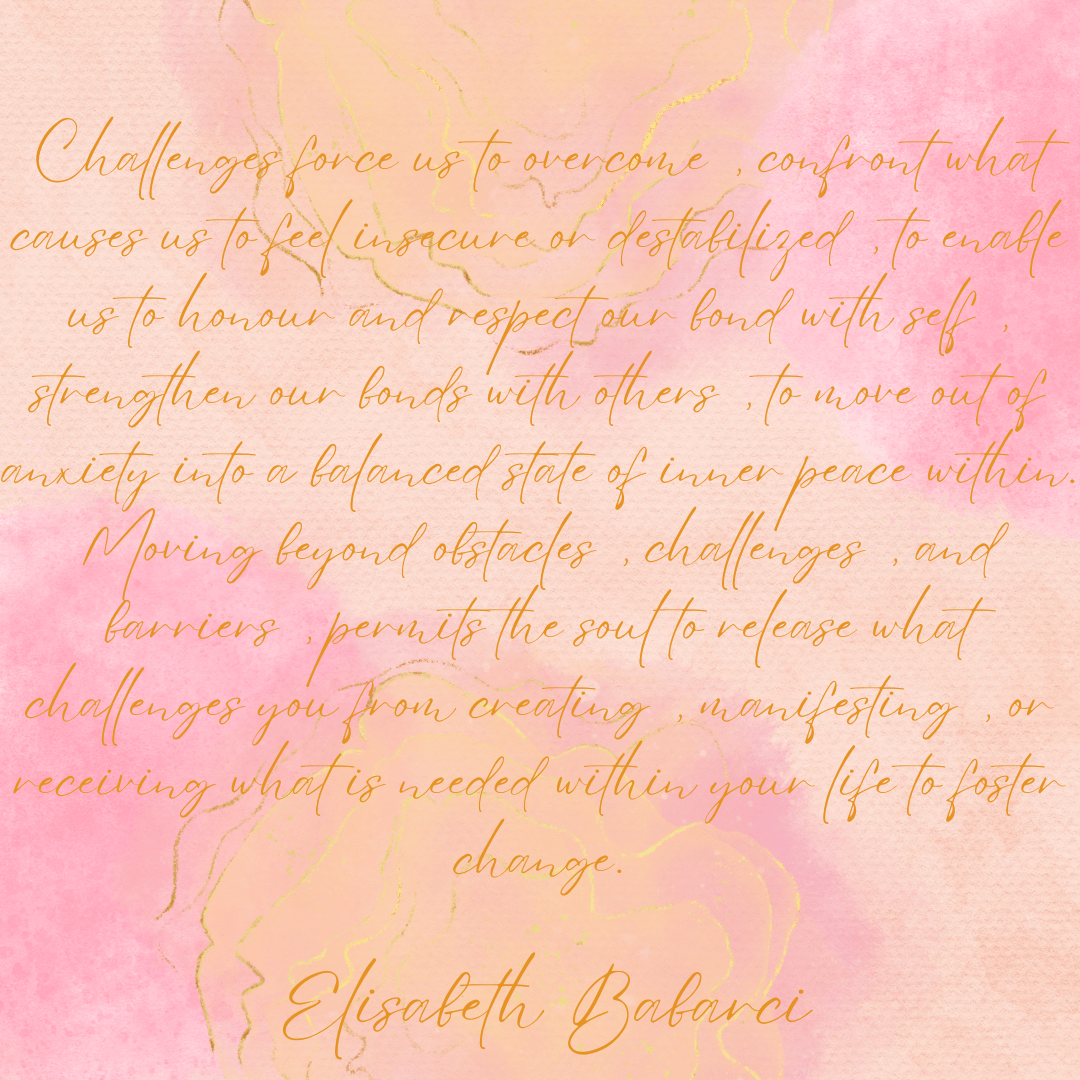 Challenges force us to overcome , confront what
causes us to feel insecure or destabilized , to enable
us to honour and respect our bond with self ,
strengthen our bonds with others , to move out of
anxiety into a balanced state of inner peace within.
Moving beyond obstacles , challenges , and
barriers , permits the soul to release what
challenges you from creating , manifesting , or
receiving what is needed within your life to foster
change.
Elisabeth Babarci